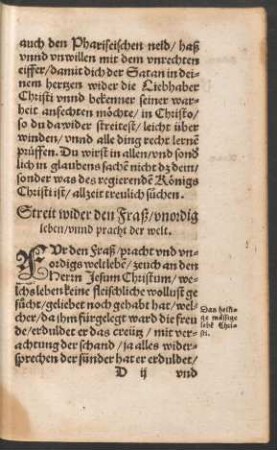 auch den Phariseischen neid/ haß
vnnd vnwillen mit dem vnrechten
eiffer/ damit dich der Satan in dei-
nem hertzen wider die Liebhaber
Christi vnnd bekenner seiner war-
heit anfechten möchte/ in Christo/
so du da wider streitest/ leicht über
winden/ vnnd alle ding recht lernē
prüffen. Du wirst in allen/ vnd sond̕
lich in glaubens sachē nicht dz dein/
sonder was des regierendē Königs
Christi ist/ allzeit treulich süchen.
Streit wider den Fraß/ vnordig
leben/ vnnd pracht der welt.
FÜr den Fraß/ pracht vnd vn-
ordigs weltlebē/ zeuch an den
Herrn Jesum Christum/ we-
lichs leben keine fleischliche wollust ge
sücht/ geliebet noch gehabt hat/ wel-
cher/ da ihn fürgelegt ward die freu
de/ erduldet er das creütz/ mit ver-
achtung der schand/ ja alles wider-
sprechen der sünder hat er erduldet/
Das heili-
ge mässige
lebē Chri-
sti.
D ij vnd